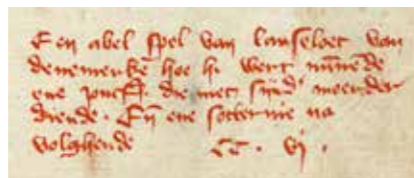 Een abel spel van lanseloet van
denemerkē hoe hi wert mīnēde
ene joncfʳ. die met sijnd' moeder
diende. Eñ ene sotternie na
volghende CC. vi.